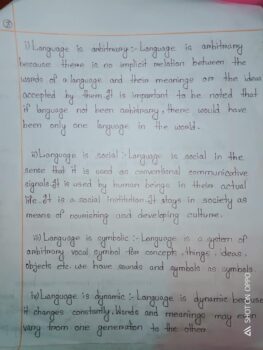 ②
i) Language is arbitrary :- Language is arbitrary
because there is no implicit relation between the
words of a language and their meanings or the ideas
accepted by them. It is important to be noted that
if language not been arbitrary, there would have
been only one language in the world.
ii) Language is social :- Language is social in the
sense that it is used as conventional communicative
signals. It is used by human beings in their actual
life. It is a social institution. It stays in society as
means of nourishing and developing culture.
iii) Language is symbolic :- Language is a system of
arbitrary vocal symbol for concepts, things, ideas,
objects etc. we have sounds and symbols as symbols
iv) Language is dynamic :- Language is dynamic because
it changes constantly. Words and meanings may
vary from one generation to the other.
SHOT ON OPPO